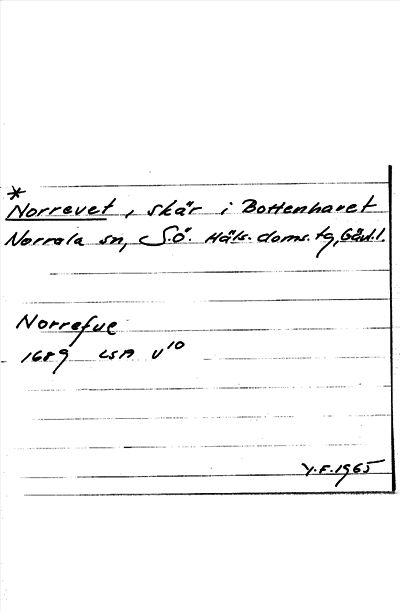 *
Norrevet, skär i Bottenhavet
Norrala sn, S.ö. Häls. doms. tg, Gävl. l.
Norrefue
1689 LSA V10
Y.F. 1965